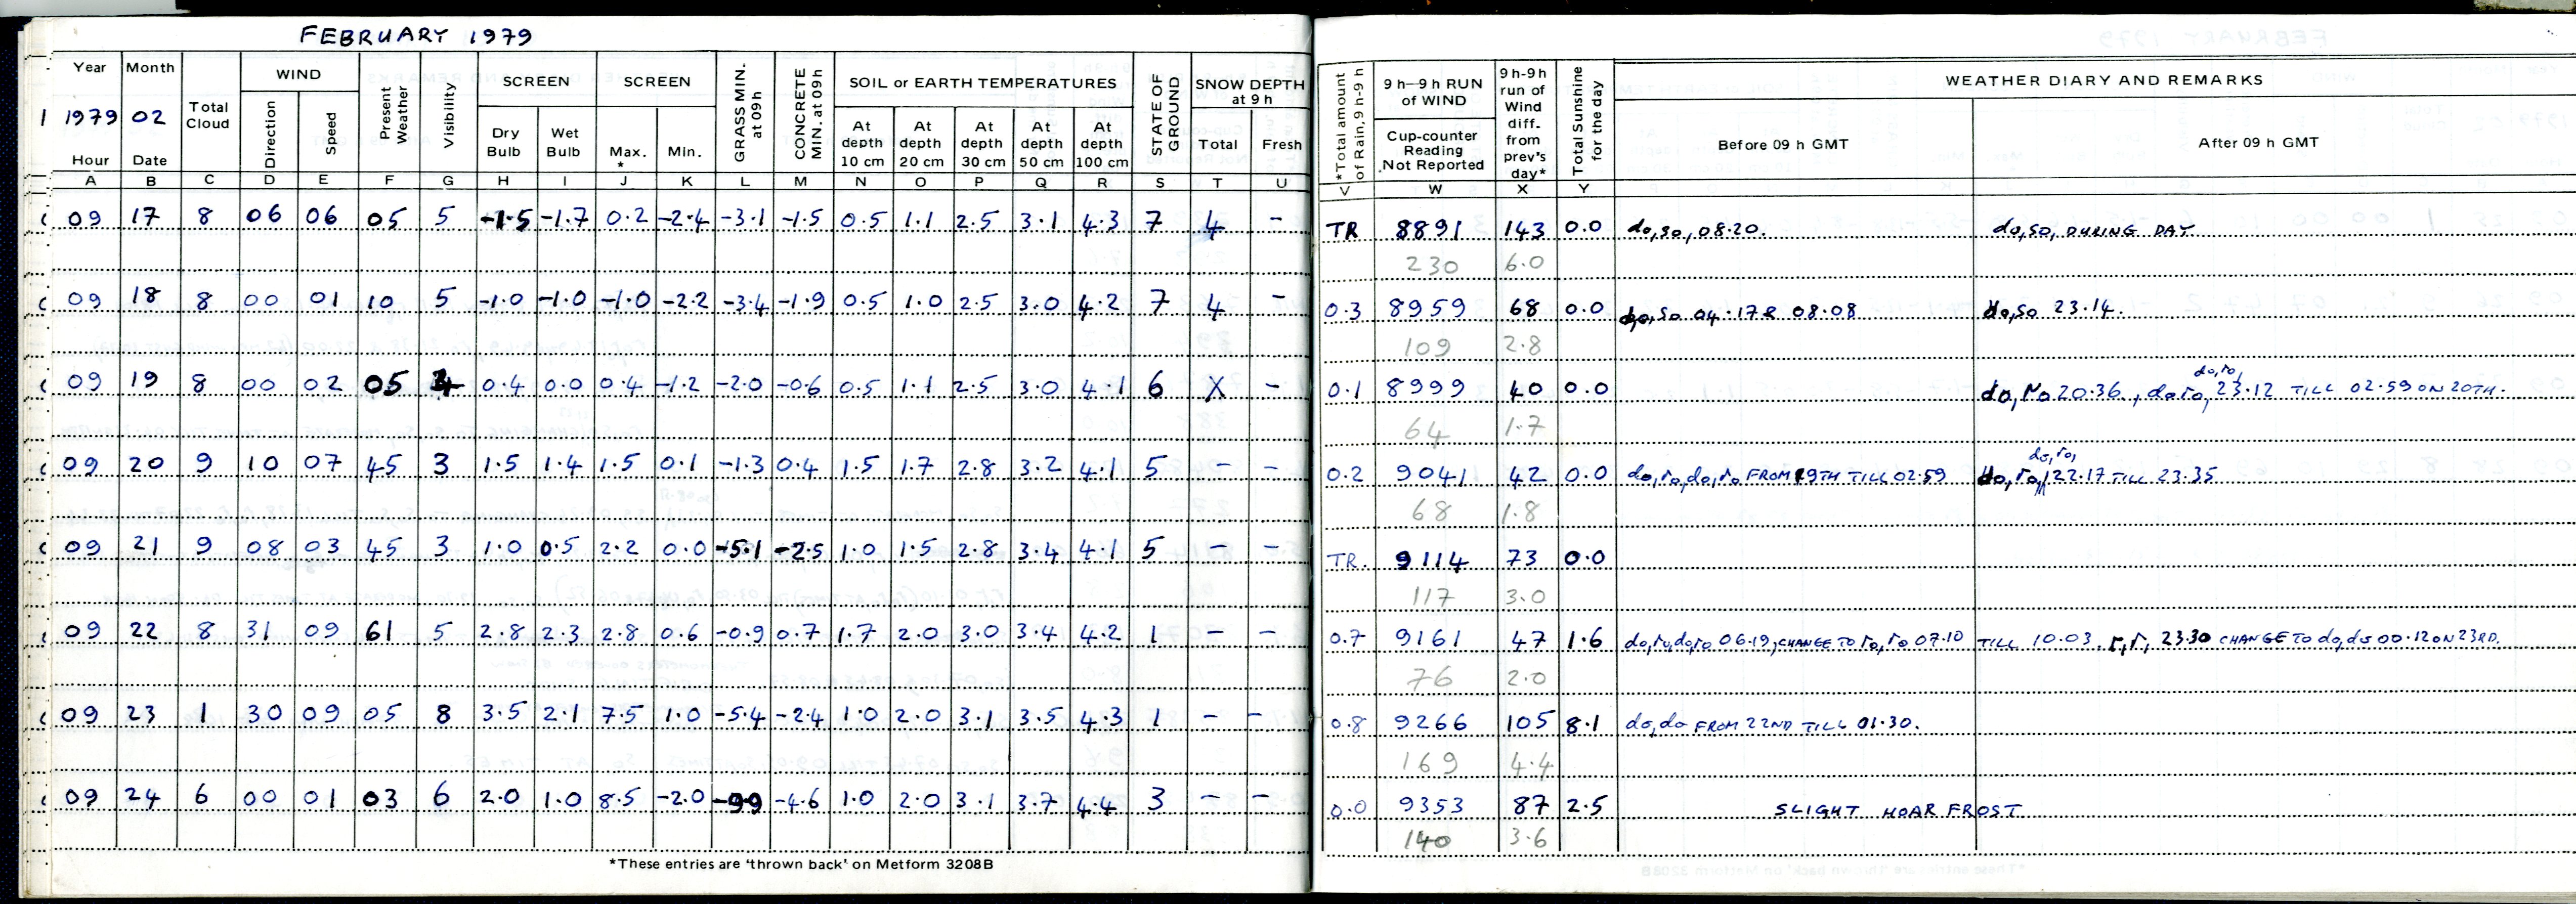 FEBRUARY 1979
Year Month Total Cloud WIND Present Weather Visibility SCREEN SCREEN GRASS MIN. at 09h CONCRETE MIN. at 09h SOIL or EARTH TEMPERATURES STATE OF GROUND SNOW DEPTH at 9 h *Total amount of Rain, 9h-9h 9h—9h RUN of WIND 9h-9h run of Wind diff. from prev's day* Total Sunshine for the day WEATHER DIARY AND REMARKS
1 1979 02 Direction Speed Cup-counter Reading Not Reported
Hour Date Dry Bulb Wet Bulb Max. * Min. At depth 10 cm At depth 20 cm At depth 30 cm At depth 50 cm At depth 100 cm Total Fresh Before 09 h GMT After 09 h GMT
A B C D E F G H I J K L M N O P Q R S T U V W X Y
09 17 8 06 06 05 5 -1.5 -1.7 0.2 -2.4 -3.1 -1.5 0.5 1.1 2.5 3.1 4.3 7 4 - TR 8891 143 0.0 do,so, 08.20. do,so, DURING DAY
230 6.0
09 18 8 00 01 10 5 -1.0 -1.0 -1.0 -2.2 -3.4 -1.9 0.5 1.0 2.5 3.0 4.2 7 4 - 0.3 8959 68 0.0 do,so 04.17 & 08.08 do,so 23.14.
109 2.8
09 19 8 00 02 05 4 0.4 0.0 0.4 -1.2 -2.0 -0.6 0.5 1.1 2.5 3.0 4.1 6 X - 0.1 8999 40 0.0 do,ro 20.36, do,ro, do,ro, 23.12 TILL 02.59 ON 20TH.
64 1.7
09 20 9 10 07 45 3 1.5 1.4 1.5 0.1 -1.3 0.4 1.5 1.7 2.8 3.2 4.1 5 - - 0.2 9041 42 0.0 do,ro,do,ro FROM 19TH TILL 02.59 do,ro, do,ro, 22.17 TILL 23.35
68 1.8
09 21 9 08 03 45 3 1.0 0.5 2.2 0.0 -5.1 -2.5 1.0 1.5 2.8 3.4 4.1 5 - - TR. 9114 73 0.0
117 3.0
09 22 8 31 09 61 5 2.8 2.3 2.8 0.6 -0.9 0.7 1.7 2.0 3.0 3.4 4.2 1 - - 0.7 9161 47 1.6 do,ro,do,ro 06.19, CHANGE TO ro,ro 07.10 TILL 10.03. r,r, 23.30 CHANGE TO do,do 00.12 ON 23RD.
76 2.0
09 23 1 30 09 05 8 3.5 2.1 7.5 1.0 -5.4 -2.4 1.0 2.0 3.1 3.5 4.3 1 - - 0.8 9266 105 8.1 do,do FROM 22ND TILL 01.30.
169 4.4
09 24 6 00 01 03 6 2.0 1.0 8.5 -2.0 -9.9 -4.6 1.0 2.0 3.1 3.7 4.4 3 - - 0.0 9353 87 2.5 SLIGHT HOAR FROST
140 3.6
*These entries are 'thrown back' on Metform 3208B